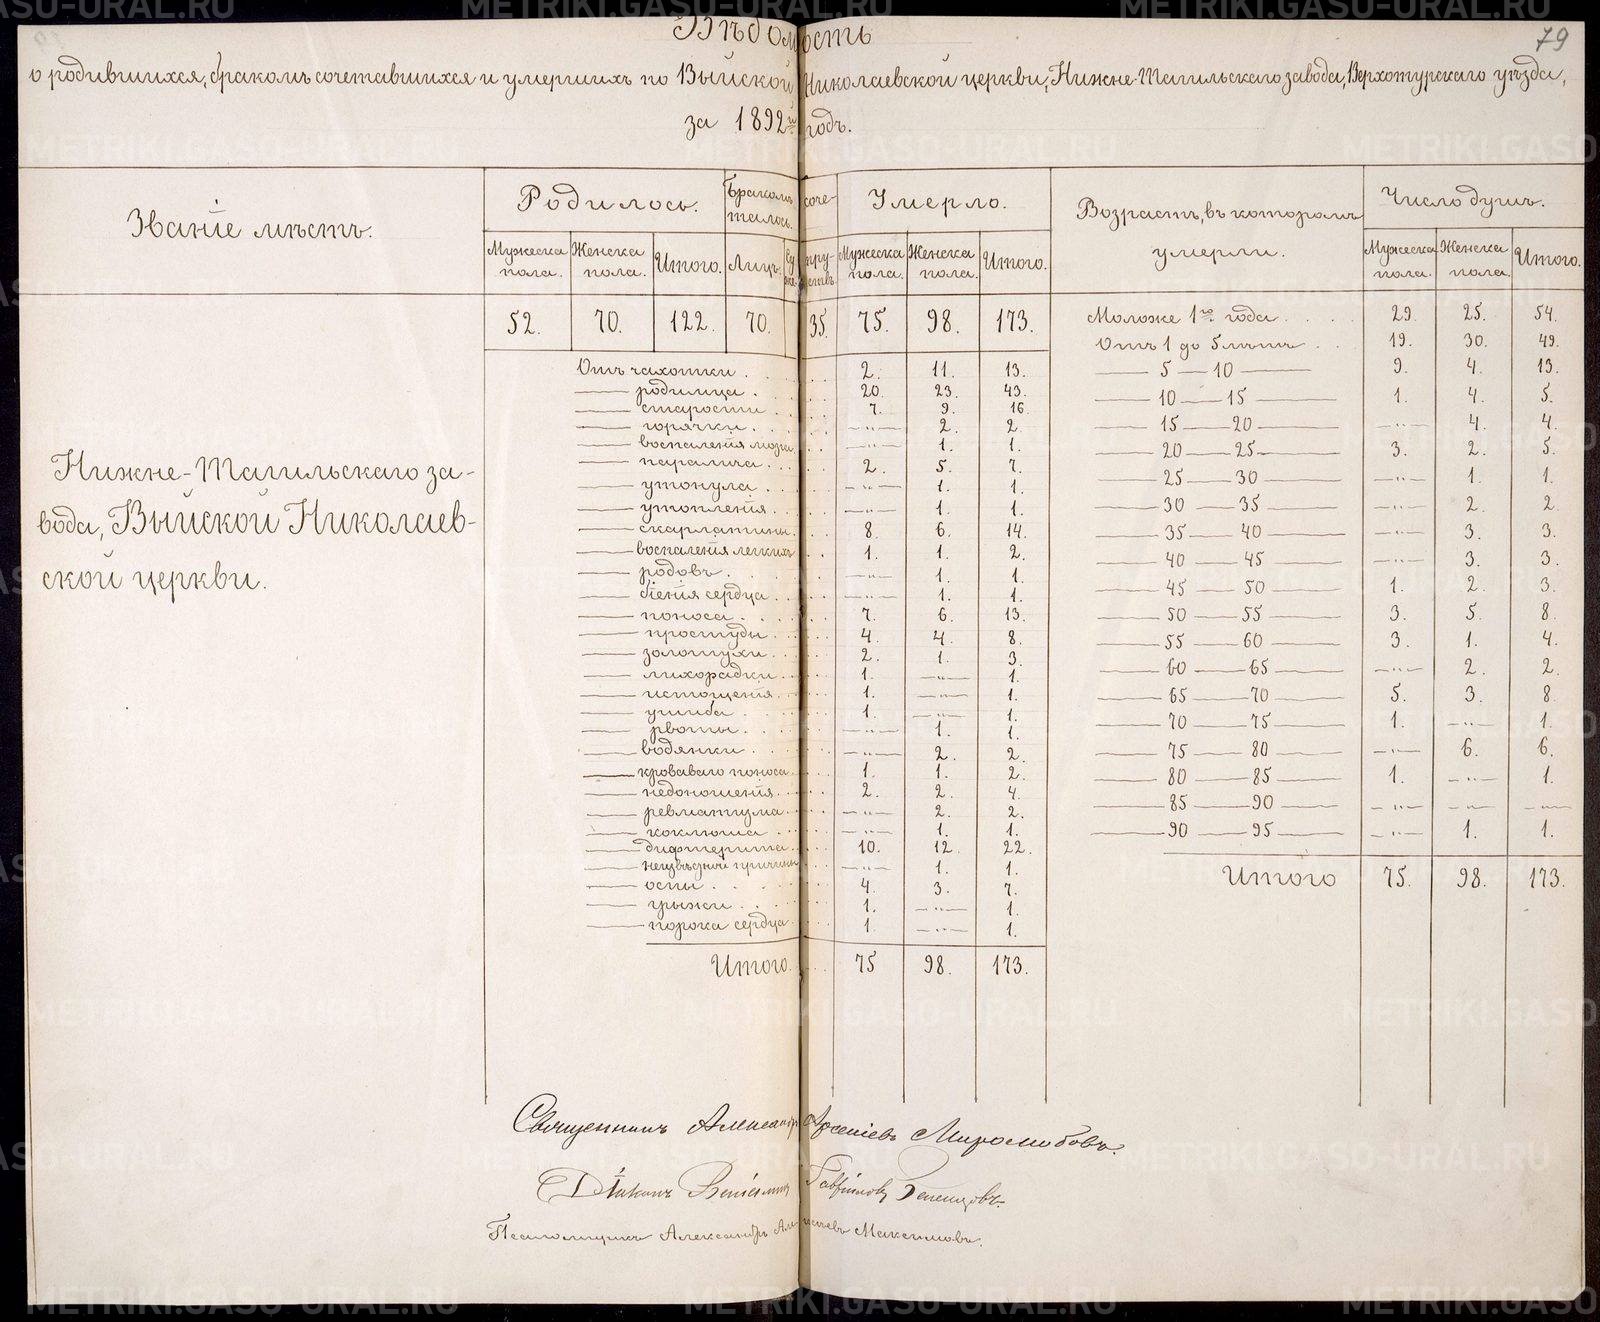 Вѣдомость
79
о родившихся, бракомъ сочетавшихся и умершихъ по Выйской Николаевской церкви, Нижне-Тагильскаго завода, Верхотурскаго уѣзда,
за 1892й годъ.
Званіе мѣстъ.
Родилось.
Бракомъ соче-
талось.
Умерло.
Возрастъ, въ которомъ
умерли.
Число душъ.
Мужеска пола. Женска пола. Итого. Лицъ. Супружествъ. Мужеска пола. Женска пола. Итого. Мужеска пола. Женска пола. Итого.
52. 70. 122. 70. 35. 75. 98. 173.
Нижне-Тагильскаго за-
вода, Выйской Николаев-
ской церкви.
Отъ чахотки . . . . 2. 11. 13.
— родимца . . . . 20. 23. 43.
— старости . . . . 7. 9. 16.
— горячки . . . . —"— 2. 2.
— воспаленія мозга . . —"— 1. 1.
— паралича . . . . 2. 5. 7.
— утонула . . . . —"— 1. 1.
— утопленія . . . . —"— 1. 1.
— скарлатины . . . 8. 6. 14.
— воспаленія легкихъ . . 1. 1. 2.
— родовъ . . . . —"— 1. 1.
— біенія сердца . . . —"— 1. 1.
— поноса . . . . 7. 6. 13.
— простуды . . . . 4. 4. 8.
— золотухи . . . . 2. 1. 3.
— лихорадки . . . . 1. —"— 1.
— истощенія . . . . 1. —"— 1.
— ушиба . . . . 1. —"— 1.
— рвоты . . . . —"— 1. 1.
— водянки . . . . —"— 2. 2.
— кроваваго поноса . . 1. 1. 2.
— недоношенія . . . 2. 2. 4.
— ревматизма . . . —"— 2. 2.
— коклюша . . . . —"— 1. 1.
— дифтерита . . . . 10. 12. 22.
— неизвѣстной причины . . —"— 1. 1.
— оспы . . . . 4. 3. 7.
— грыжи . . . . 1. —"— 1.
— порока сердца . . . 1. —"— 1.
Итого . . . 75 98. 173.
Моложе 1го года . . . . 29. 25. 54.
Отъ 1 до 5 лѣтъ . . . 19. 30. 49.
— 5 — 10 — 9. 4. 13.
— 10 — 15 — 1. 4. 5.
— 15 — 20 — —"— 4. 4.
— 20 — 25 — 3. 2. 5.
— 25 — 30 — —"— 1. 1.
— 30 — 35 — —"— 2. 2.
— 35 — 40 — —"— 3. 3.
— 40 — 45 — —"— 3. 3.
— 45 — 50 — 1. 2. 3.
— 50 — 55 — 3. 5. 8.
— 55 — 60 — 3. 1. 4.
— 60 — 65 — —"— 2. 2.
— 65 — 70 — 5. 3. 8.
— 70 — 75 — 1. —"— 1.
— 75 — 80 — —"— 6. 6.
— 80 — 85 — 1. —"— 1.
— 85 — 90 — —"— —"— —"—
— 90 — 95 — —"— 1. 1.
Итого 75. 98. 173.
Священникъ Александръ Арсеніевъ Миролюбовъ.
Діаконъ Веніаминъ Гавріиловъ
Псаломщикъ Александръ Максимовъ.
METRIKI.GASO-URAL.RU